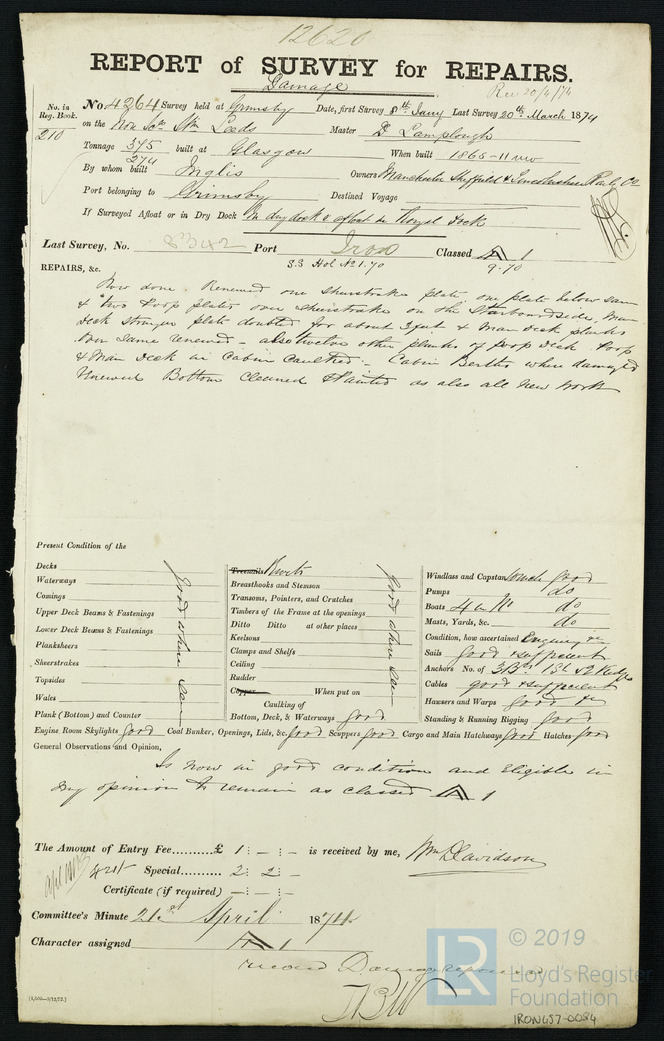 12620
REPORT of SURVEY for REPAIRS.
Damage
Rec 20/4/74
No. in Reg. Book. No. 4264 Survey held at Grimsby Date, first Survey 8th Jany Last Survey 20th March 1874
210 on the Iron Scr Str Leeds Master D Lamplough
Tonnage 375 274 built at Glasgow When built 1865-11 mo
By whom built Inglis Owners Manchester Sheffield & Lincolnshire Raily Co
Port belonging to Grimsby Destined Voyage
If Surveyed Afloat or in Dry Dock In dry dock & afloat in Royal Dock
Last Survey, No. 8342 Port Iron Classed A 1
S.S Hol No 1.70 9.70
REPAIRS, &c.
Now done. Renewed one sheerstrake plate, one plate below same
& two Poop plates over sheerstrake on the Starboard side, Main
deck stringer plate doubled for about 3 feet & Main deck planks
over same renewed – also twelve other planks of Poop deck. Poop
& Main deck in Cabin Caulked – Cabin Berths where damaged
Renewed Bottom cleaned & Painted as also all new work
Present Condition of the
Decks
Waterways
Comings
Upper Deck Beams & Fastenings
Lower Deck Beams & Fastenings
Planksheers
Sheerstrakes
Topsides
Wales
Plank (Bottom) and Counter
good where seen
Treenails Rivets
Breasthooks and Stemson
Transoms, Pointers, and Crutches
Timbers of the Frame at the openings
Ditto Ditto at other places
Keelsons
Clamps and Shelfs
Ceiling
Rudder
Copper When put on
Caulking of
Bottom, Deck, & Waterways good
good where seen
Windlass and Capstan good
Pumps do
Boats 4 in No do
Masts, Yards, &c. do
Condition, how ascertained Enquiry &c
Sails good & sufficient
Anchors No. of 3 Brs 1 St & 2 Kedges
Cables good & sufficient
Hawsers and Warps good &c
Standing & Running Rigging good
Engine Room Skylights good Coal Bunker, Openings, Lids, &c. good Scuppers good Cargo and Main Hatchways good Hatches good
General Observations and Opinion,
Is now in good condition and Eligible in
my opinion to remain as classed A 1
The Amount of Entry Fee.......... £ 1 : – : – is received by me, Wm Davidson
42/- Special.......... 2 : 2 : –
Certificate (if required) – : – : –
Committee's Minute 21st April 1874
Character assigned A 1
record Damage repaired
© 2019
Lloyd's Register
Foundation
LR
IRON457-0034